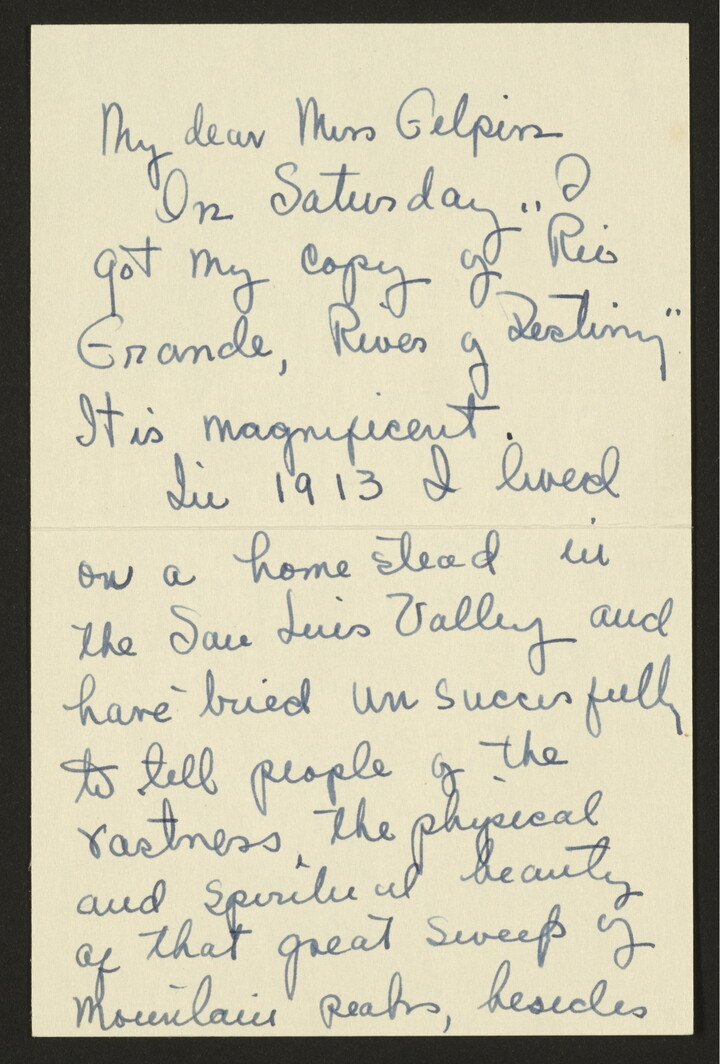 My dear Miss Gilpin
On Saturday, I
got my copy of "Rio
Grande, River of Destiny"
It is magnificent.
In 1913 I lived
on a homestead in
the San Luis Valley and
have tried unsuccessfully
to tell people of the
vastness, the physical
and spiritual beauty
of that great sweep of
mountain peaks, besides